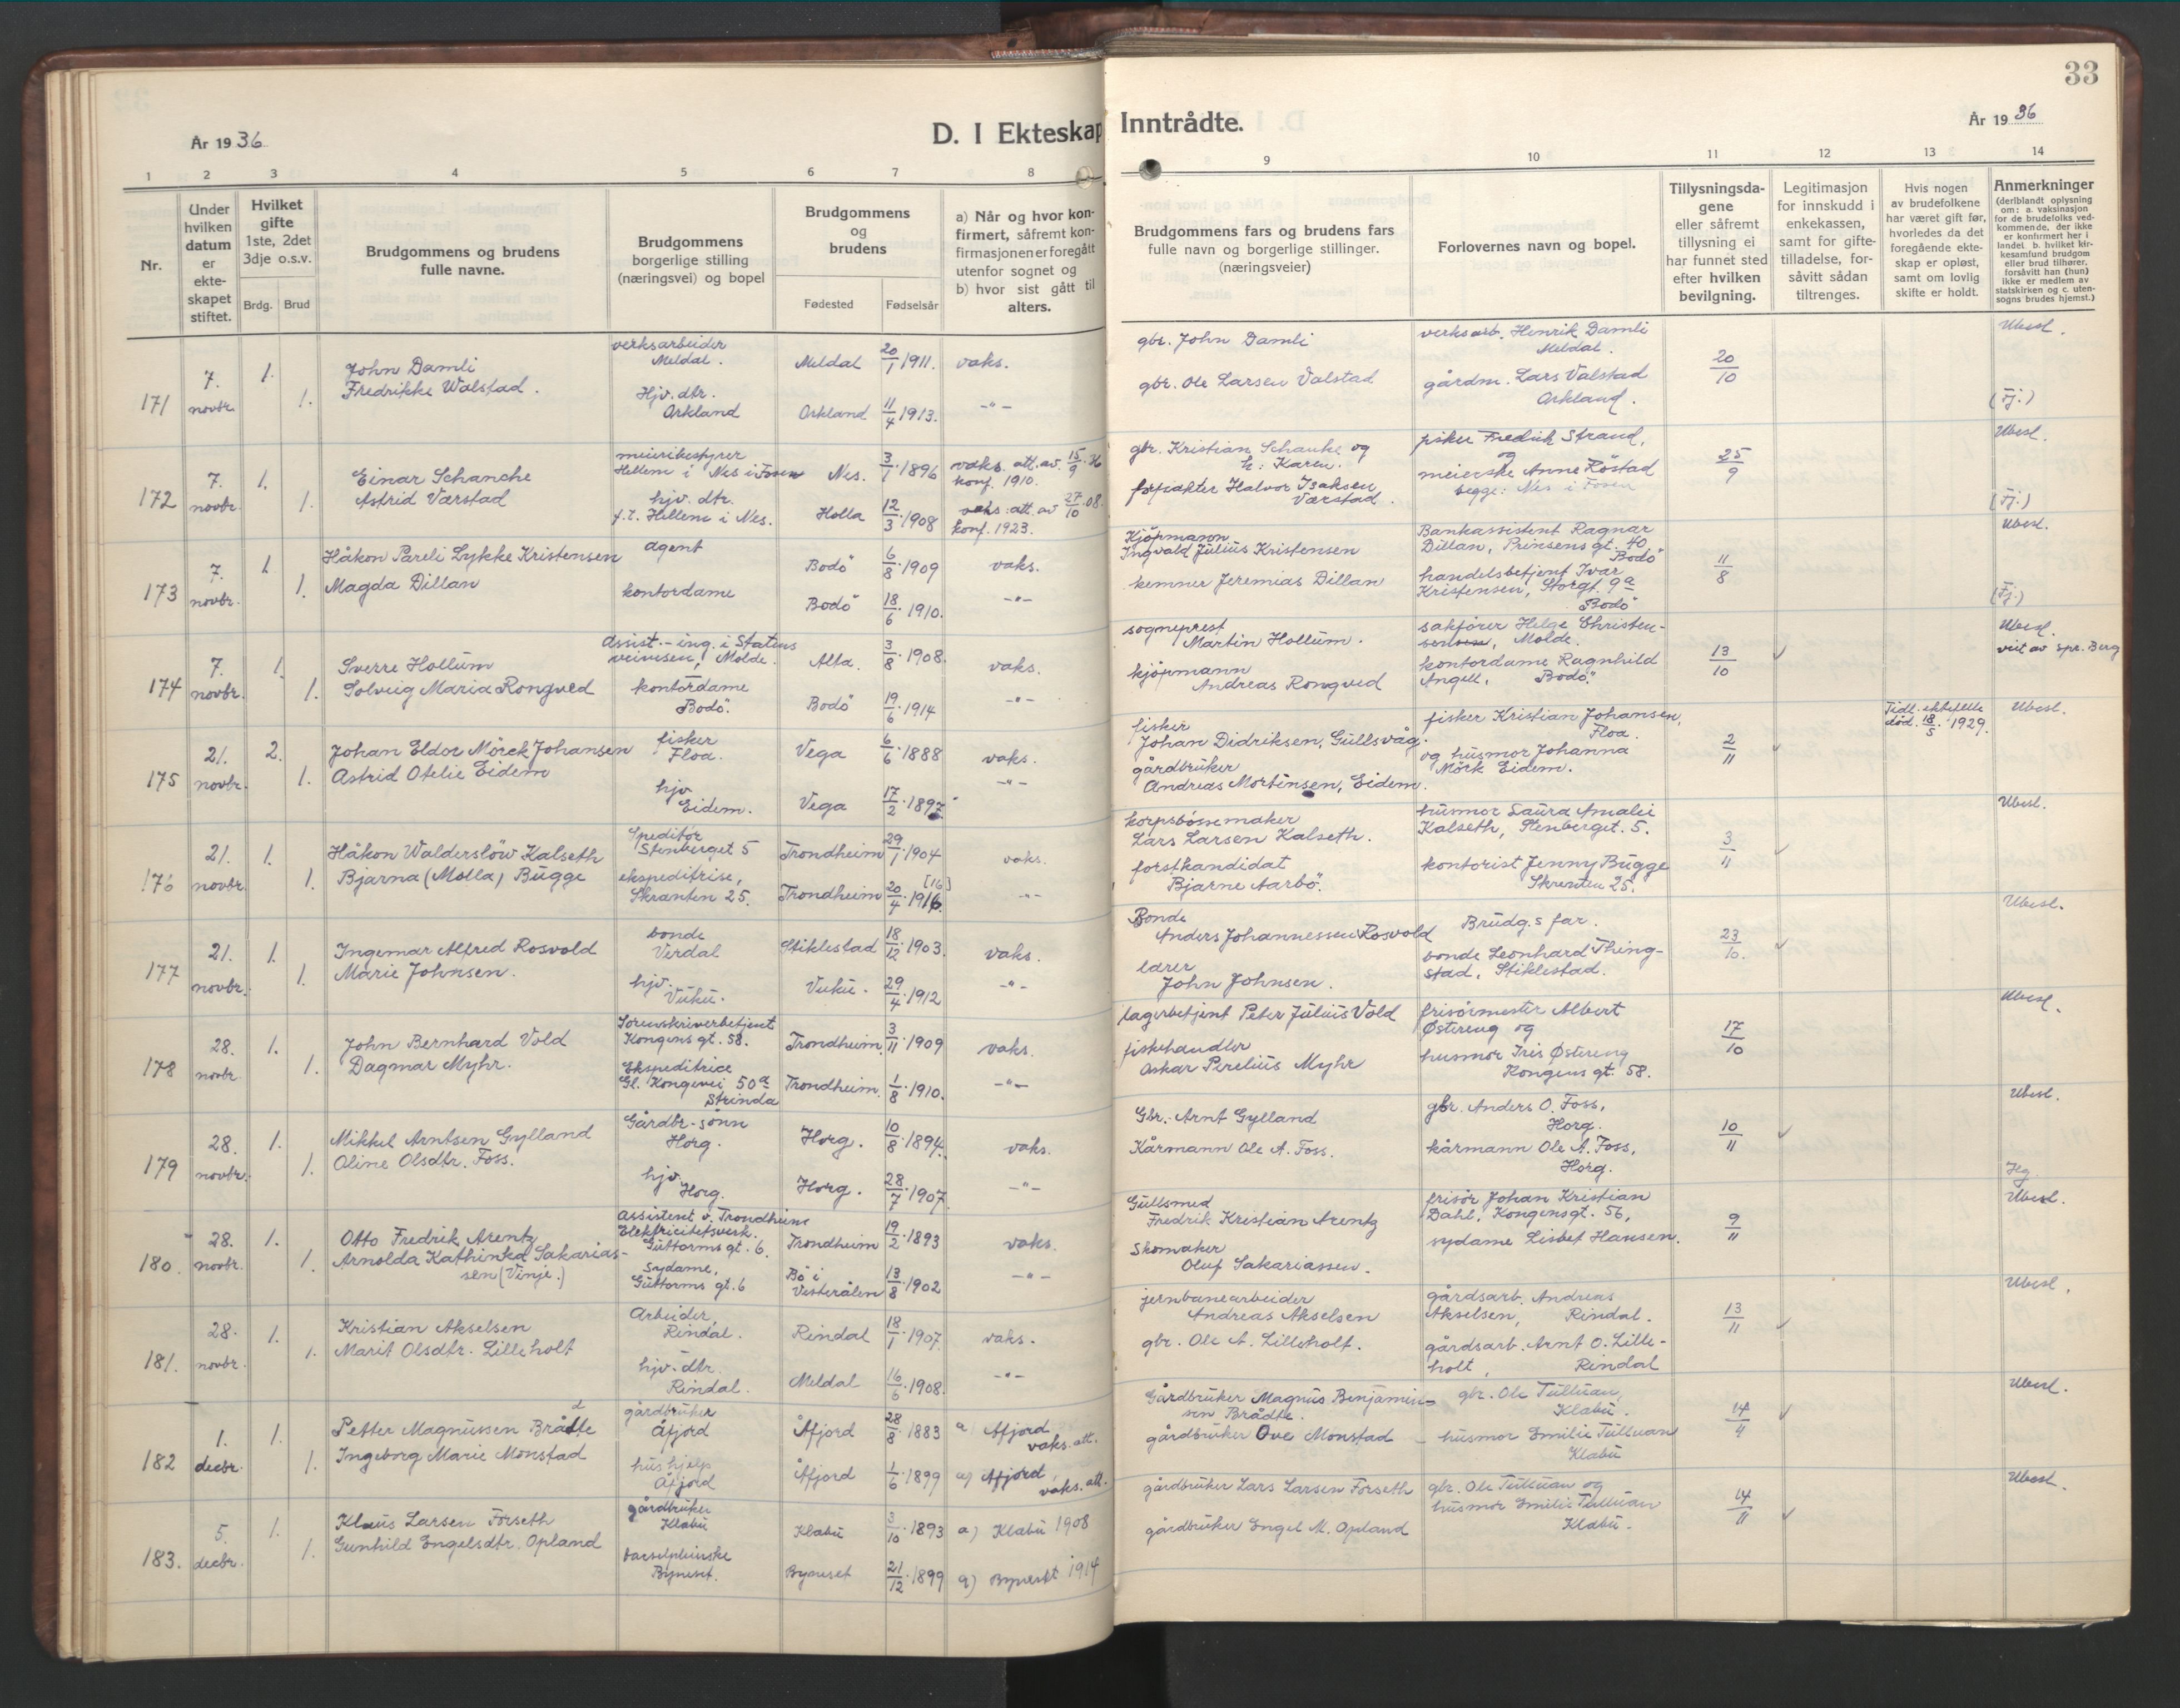 33
År 1936
D. I Ekteskap
Inntrådte.
År 1936
1 2 3 4 5 6 7 8
9 10 11 12 13 14
Nr.
Under hvilken datum er ekteskapet stiftet.
Hvilket gifte 1ste, 2det 3dje o.s.v.
Brdg. Brud
Brudgommens og brudens fulle navne.
Brudgommens borgerlige stilling (næringsvei) og bopel
Brudgommens og brudens
Fødested Fødselsår
a) Når og hvor konfirmert, såfremt konfirmasjonen er foregått utenfor sognet og
b) hvor sist gått til alters.
Brudgommens fars og brudens fars fulle navn og borgerlige stillinger. (næringsveier)
Forlovernes navn og bopel.
Tillysningsdagene eller såfremt tillysning ei har funnet sted efter hvilken bevilgning.
Legitimasjon for innskudd i enkekassen, samt for giftetilladelse, forsåvitt sådan tiltrenges.
Hvis nogen av brudefolkene har været gift før, hvorledes da det foregående ekteskap er opløst, samt om lovlig skifte er holdt.
Anmerkninger (deriblandt oplysning om: a. vaksinasjon for de brudefolks vedkommende, der ikke er konfirmert her i landet b. hvilket kirkesamfund brudgom eller brud tilhører, forsåvitt han (hun) ikke er medlem av statskirken og c. utensogns brudes hjemst.)
171 7. novbr. 1. 1.
John Damli
Fredrikke Walstad.
verksarbeider
Meldal.
Hjv. dtr.
Orkland
Meldal 20/1 1911. vaks.
Orkland 11/4 1913. -"-
gbr. John Damli
gbr. Ole Larsen Valstad
verksarb. Henrik Damli
Meldal.
gårdm. Lars Valstad
Orkland.
20/10
Ubesl.
(Fj.)
172 7. novbr. 1. 1.
Einar Schanche
Astrid Varstad
meieribestyrer
Hellem i Nes i Fosen
hjv. dtr.
f.t. Hellem i Nes.
Nes. 3/1 1896 vaks. att. av. 15/9 36
konf. 1910.
Holla 12/3 1908 vaks. att. av 27/10 08.
konf. 1923.
gbr. Kristian Schanke og
h: Karen.
forpakter Halvor Isaksen
Varstad.
fisker Fredrik Strand,
og
meierske Anne Röstad
begge: Nes i Fosen
25/9
Ubesl.
(Fj.)
173 7. novbr. 1. 1.
Håkon Pareli Lykke Kristensen
Magda Dillan
agent
kontordame
Bodö 6/8 1909 vaks.
Bodö 18/6 1910. -"-
Kjöpmann
Ingvald Julius Kristensen
kemner Jeremias Dillan
Bankassistent Ragnar
Dillan, Prinsens gt. 40
Bodö
handelsbetjent Ivar
Kristensen, Storgt. 9a
Bodö
11/8
Ubesl.
(Fj.)
174 7. novbr. 1. 1.
Sverre Hollum
Solveig Maria Rongved
Assist.-ing. i Statens
veivesen, Molde.
kontordame
Bodö.
Alta. 3/8 1908. vaks.
Bodö 19/6 1914 -"-
sogneprest
Martin Hollum.
kjöpmann
Andreas Rongved
sakfører Helge Christen-
sen, Molde.
kontordame Ragnhild
Angell, Bodö.
13/10
Ubesl.
viet av spr. Berg
175 21. novbr. 2. 1.
Johan Eldor Mörck Johansen
Astrid Otelie Eidem
fisker
Floa.
hjv
Eidem.
Vega 6/6 1888 vaks.
Vega 17/2 1897 -"-
fisker
Johan Didriksen, Gullsvåg.
gårdbruker
Andreas Mortinsen, Eidem.
fisker Kristian Johansen,
Floa.
og husmor Johanna
Mörk Eidem.
2/11
Tidl. ektefelle
död. 18/5 1929.
Ubesl.
176 21. novbr. 1. 1.
Håkon Walderslöw Kalseth
Bjarna (Molla) Bugge
Speditör
Stenberget 5
ekspeditrise,
Skranten 25.
Trondheim 29/1 1904 vaks.
Trondheim 20/4 1916. [16] -"-
korpsbössemaker
Lars Larsen Kalseth.
forstkandidat
Bjarne Aarbö.
husmor Laura Amalie
Kalseth, Stenberget. 5.
kontorist Jenny Bugge
Skrenten 25.
3/11
Ubesl.
177 21. novbr. 1. 1.
Ingemar Alfred Rosvold
Marie Johnsen.
bonde
Verdal
hjv.
Vuku.
Stiklestad 18/12 1903. vaks.
Vuku. 29/4 1912 -"-
Bonde
Anders Johannessen Rosvold
lærer
John Johnsen.
Brudg.s far.
bonde Leonhard Thing-
stad, Stiklestad.
23/10.
Ubesl.
178 28. novbr 1. 1.
John Bernhard Vold
Dagmar Myhr.
Sorenskriverbetjent
Kongens gt. 58.
Ekspeditrice
Gl. Kongevei 50a
Strinda
Trondheim. 3/11 1909 vaks.
Trondheim. 1/8 1910. -"-
lagerbetjent Peter Julius Vold
fiskehandler
Oskar Perelius Myhr
frisörmester Albert
Østereng og
husmor Iris Østereng
Kongens gt. 58.
17/10
Ubesl.
179 28. novbr. 1. 1.
Mikkel Arntsen Gylland
Oline Olsdtr. Foss.
Gårdbr-sönn
Horg.
hjv
Horg.
Horg. 10/8 1894. vaks.
Horg. 28/7 1907. -"-
Gbr. Arnt Gylland
Kårmann Ole A. Foss.
gbr. Anders O. Foss,
Horg.
kårmann Ole A. Foss,
Horg.
10/11
Ubesl.
180. 28. novbr. 1. 1.
Otto Fredrik Arentz
Arnolda Kathinka Sakarias-
sen (Vinje.)
Assistent v. Trondheim
Elektricitetsverk.
Guttorms gt. 6.
Sydame,
Guttorms gt. 6
Trondheim 19/2 1893 vaks.
Bö i
Vesterålen 13/8 1902 -"-
Gullsmed
Fredrik Kristian Arentz
Skomaker
Oluf Sakariassen.
frisör Johan Kristian
Dahl, Kongensgt. 56,
sydame Lisbet Hansen.
9/11
Ubesl.
181. 28. novbr. 1. 1.
Kristian Akselsen
Marit Olsdtr. Lilleholt
Arbeider,
Rindal.
hjv. dtr.
Rindal.
Rindal 18/1 1907. vaks.
Meldal 16/6 1908. -"-
jernbanearbeider
Andreas Akselsen
gbr. Ole A. Lilleholt.
gårdsarb. Andreas
Akselsen, Rindal.
gårdsarb. Arnt O. Lille-
holt, Rindal
13/11
Ubesl.
182 1. decbr. 1. 1.
Petter Magnussen Brådte
Ingeborg Marie Monstad
gårdbruker
Åfjord
hushjelp
Åfjord
Åfjord 28/8 1883 a) Åfjord
vaks. att.
Åfjord 1/6 1899 a) Åfjord,
vaks. att.
Gårdbruker Magnus Benjamin-
sen Brådte.
gårdbruker Ove Monstad
gbr. Ole Tulluan,
Klæbu.
husmor Emilie Tulluan
Klæbu
14/4
Ubesl.
183. 5. decbr. 1. 1.
Klaus Larsen Forseth
Gunhild Engelsdtr. Opland
gårdbruker
Klæbu
barselpleierske
Byneset.
Klæbu 3/10 1893 a) Klæbu 1908
Byneset 21/12 1899 a) Byneset 1914
gårdbruker Lars Larsen Forseth
gårdbruker Engel M. Opland
gbr. Ole Tulluan og
husmor Emilie Tulluan
Klæbu.
14/11
Ubesl.